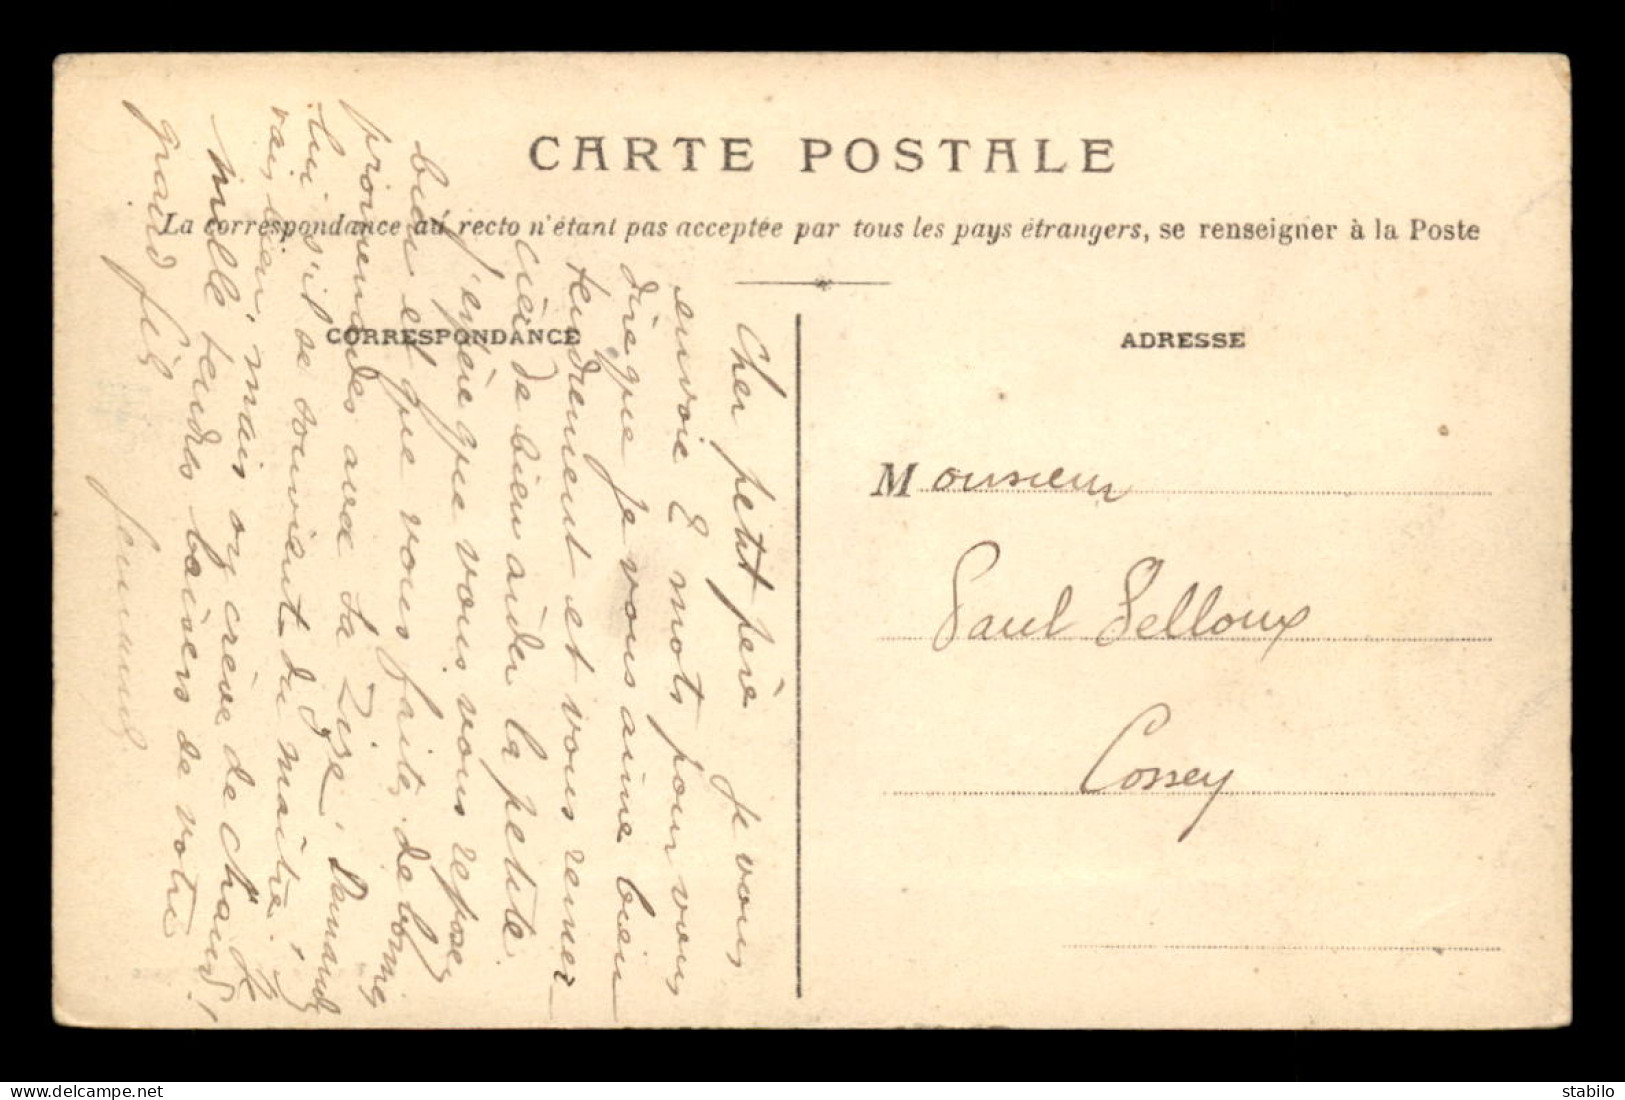 CARTE POSTALE
La correspondance au recto n'étant pas acceptée par tous les pays étrangers, se renseigner à la Poste
CORRESPONDANCE
ADRESSE
Cher petit père Je vous
envoie 2 mots pour vous
dire que je vous aime bien
tendrement et vous remer
cier de bien aider la petite.
J'espère que vous vous reposez
bien et que vous faites de bonnes
promenades avec la Zize. Demandez
lui s'il se souvient du maître. Je
vais bien mais on crève de chaud!
Mille tendres baisers de votre
grand fils
Fernand
Monsieur
Paul Pelloux
Cossey
stabilo